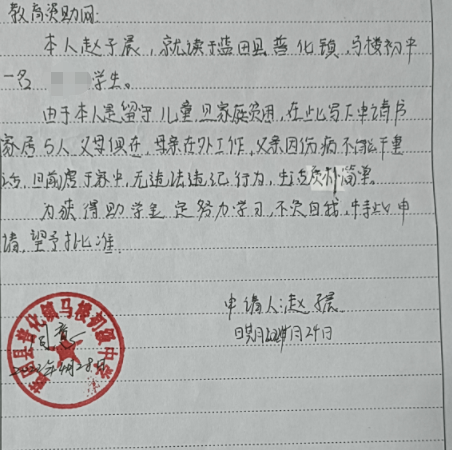 教育资助网:
本人赵子晨,就读于蓝田县普化镇,马楼初中
一名 学生。
由于本人是留守儿童,且家庭贫困,在此写下申请书
家庭5人,父母俱在,母亲在外工作,父亲因伤病不能干重
活,目前居于家中,无违法违纪行为,生活质朴简单。
为获得助学金 定努力学习,不负自我,特此申
请,望予批准
申请人:赵子晨
日期 月24日
蓝田县普化镇马楼初级中学
同意
28日